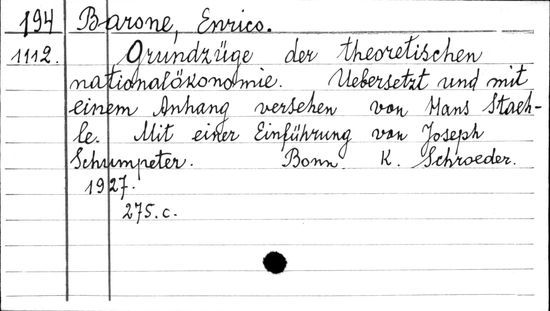 194 Barone, Enrico.
1112. Grundzüge der theoretischen
nationalökonomie. Uebersetzt und mit
einem Anhang versehen von Hans Staeh-
le. Mit einer Einführung von Joseph
Schumpeter. Bonn. K. Schroeder.
1927.
275.c.